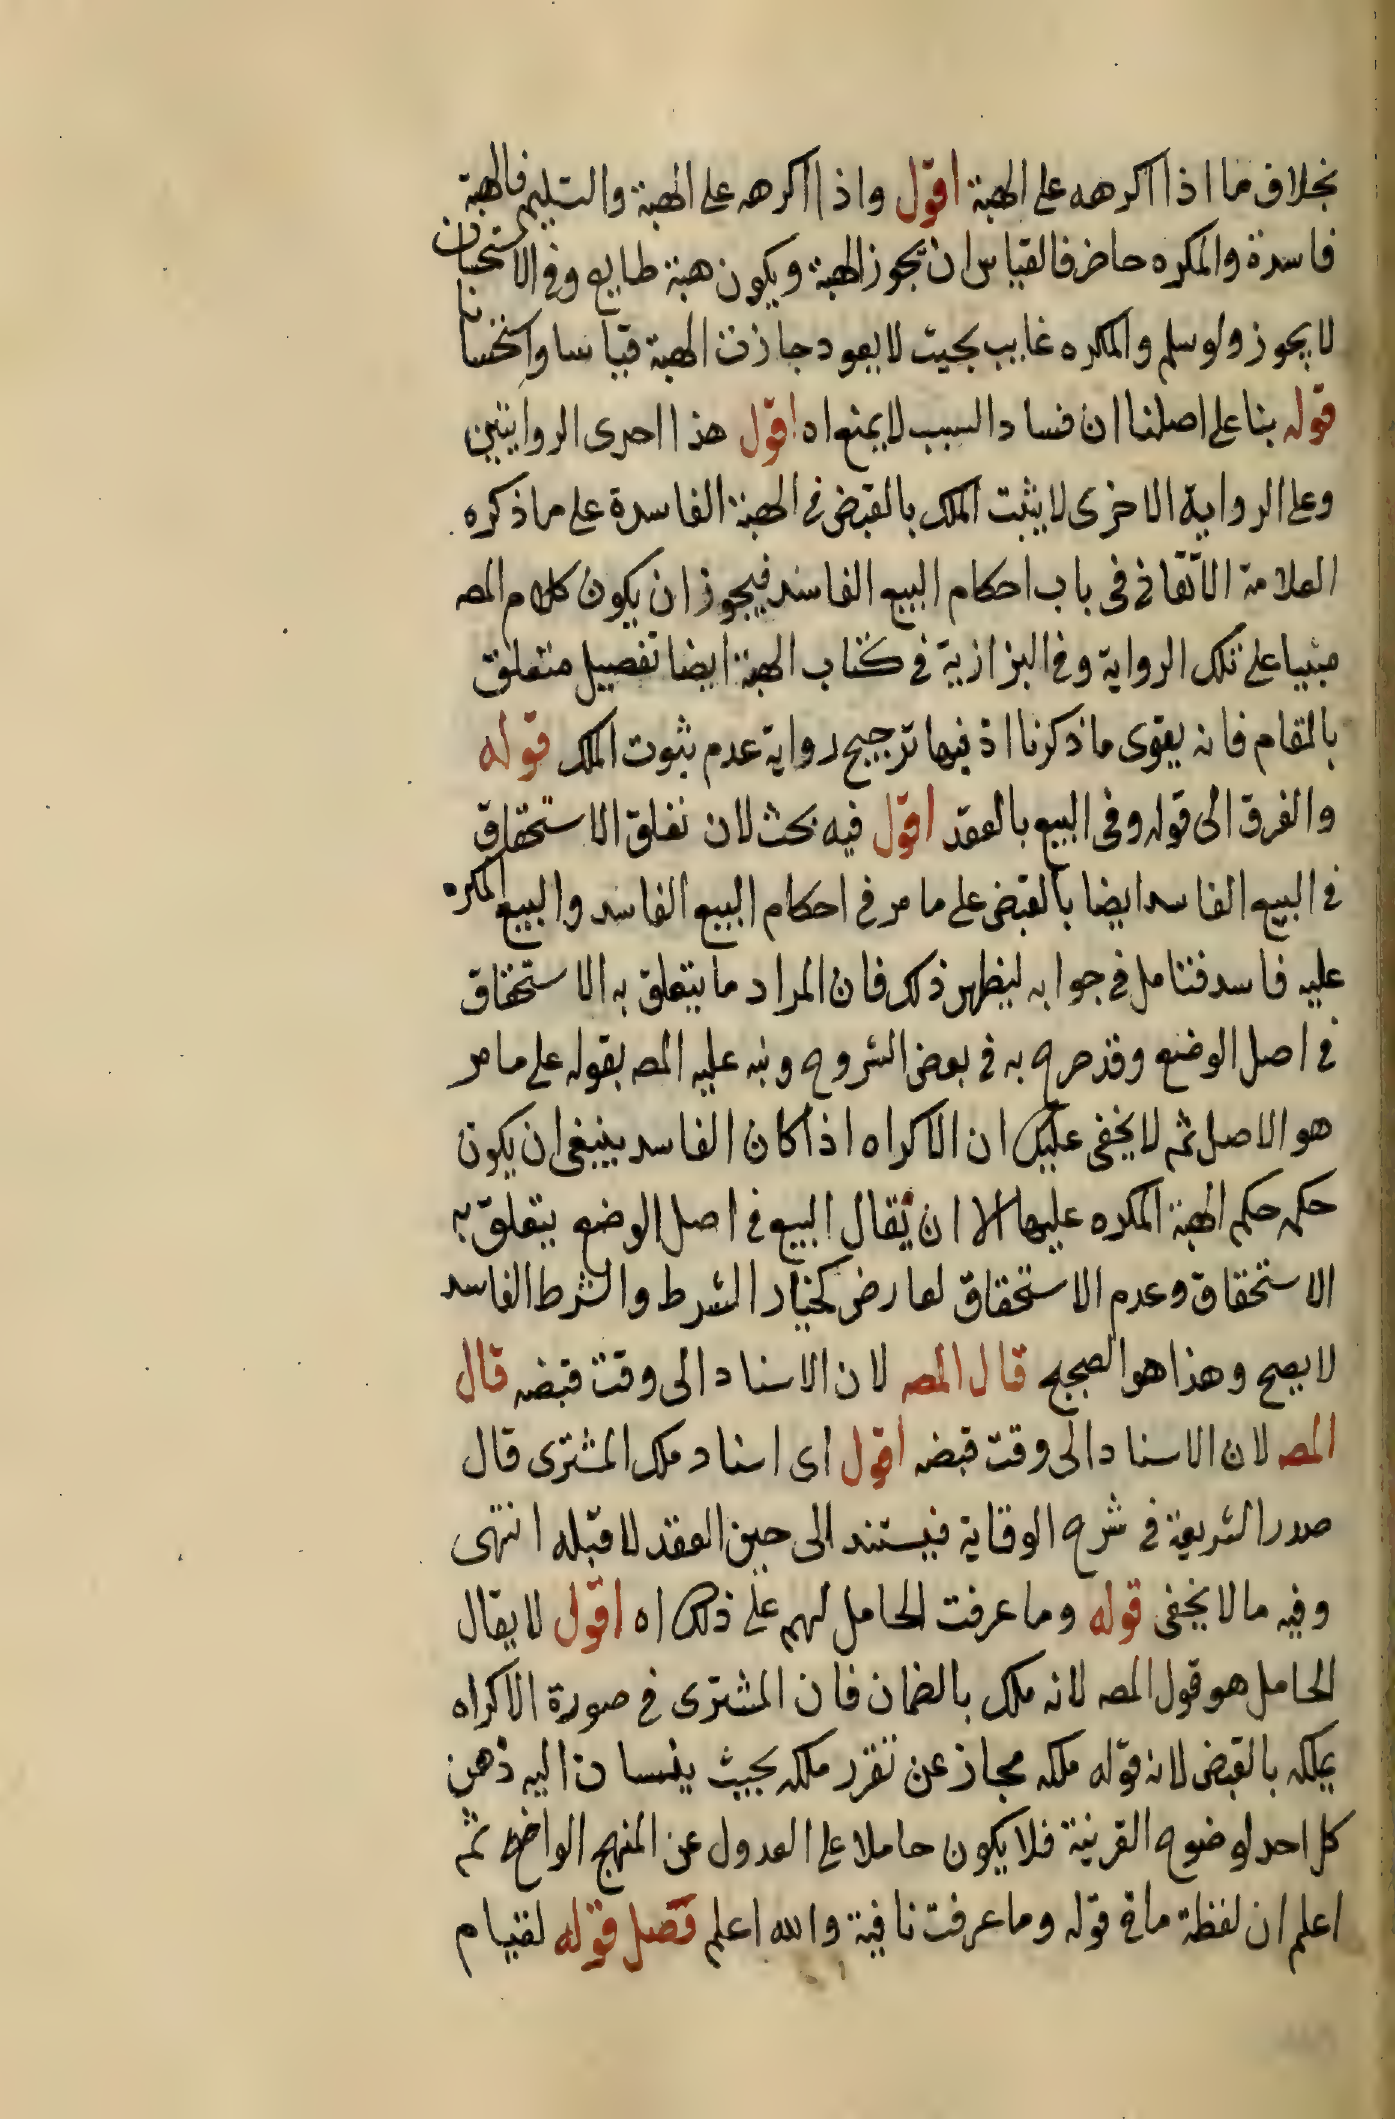 بخلاف ما اذا اكرهه على الهبة اقول واذا اكرهه على الهبة والتسليم فالهبة
فاسدة والمكره حاضر فالقياس ان تجوز الهبة ويكون هبة طايع وفي الاستحسان
لا يجوز ولو سلم والمكره غايب بحيث لا يعود جازت الهبة قياسا واستحسانا
قوله بنا على اصلنا ان فساد السبب لا يمنع اه اقول هذا احدى الروايتين
وعلى الرواية الاخرى لا يثبت الملك بالقبض في الهبة الفاسدة على ما ذكره
العلامة الاتقاني في باب احكام البيع الفاسد فيجوز ان يكون كلام المصـ
مبنيا على تلك الرواية وفي البزازية في كتاب الهبة ايضا تفصيل متعلق
بالمقام فانه يقوى ما ذكرنا اذ فيها ترجيح رواية عدم ثبوت الملك قوله
والفرق الى قوله وفي البيع بالعقد اقول فيه بحث لان تعلق الاستحقاق
في البيع الفاسد ايضا بالقبض على ما مر في احكام البيع الفاسد والبيع المكره
عليه فاسد فتامل في جوابه ليظهر ذلك فان المراد ما يتعلق به الاستحقاق
في اصل الوضع وقد صرح به في بعض الشروح ونبه عليه المصـ بقوله على ما مر
هو الاصل ثم لا يخفى عليك ان الاكراه اذا كان الفاسد ينبغي ان يكون
حكمه حكم الهبة المكره عليها الا ان يقال البيع في اصل الوضع يتعلق به
الاستحقاق وعدم الاستحقاق لعارض كخيار الشرط والشرط الفاسد
لا يصح وهذا هو الصحيح قال المصـ لان الاسناد الى وقت قبضه قال
المصـ لان الاسناد الى وقت قبضه اقول اى اسناد ملك المشترى قال
صدر الشريعة في شرح الوقاية فيستند الى حين العقد لا قبله انتهى
وفيه ما لا يخفى قوله وما عرفت الحامل لهم على ذلك اه اقول لا يقال
الحامل هو قول المصـ لانه ملك بالضمان فان المشترى في صورة الاكراه
يملكه بالقبض لانه قوله ملكه مجاز عن تقرر ملكه بحيث ينساق اليه ذهن
كل احد لوضوح القرينة فلا يكون حاملا على العدول عن المنهج الواضح ثم
اعلم ان لفظة ما في قوله وما عرفت نافية والله اعلم فصل قوله لقيام